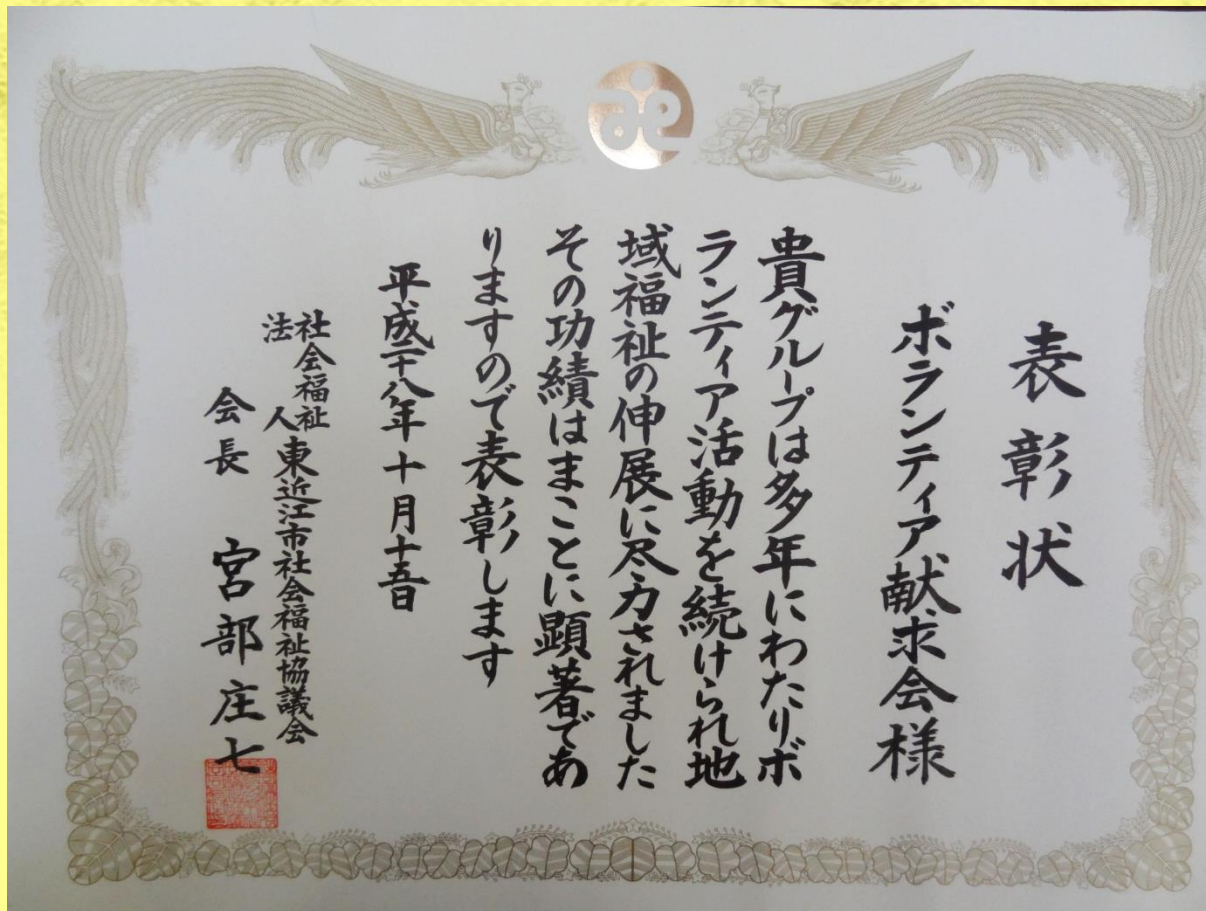 表彰状
ボランティア献求会様
貴グループは多年にわたりボ
ランティア活動を続けられ地
域福祉の伸展に尽力されました
その功績はまことに顕著であ
りますので表彰します
平成二十八年十月十五日
社会福祉法人東近江市社会福祉協議会
会長 宮部庄七